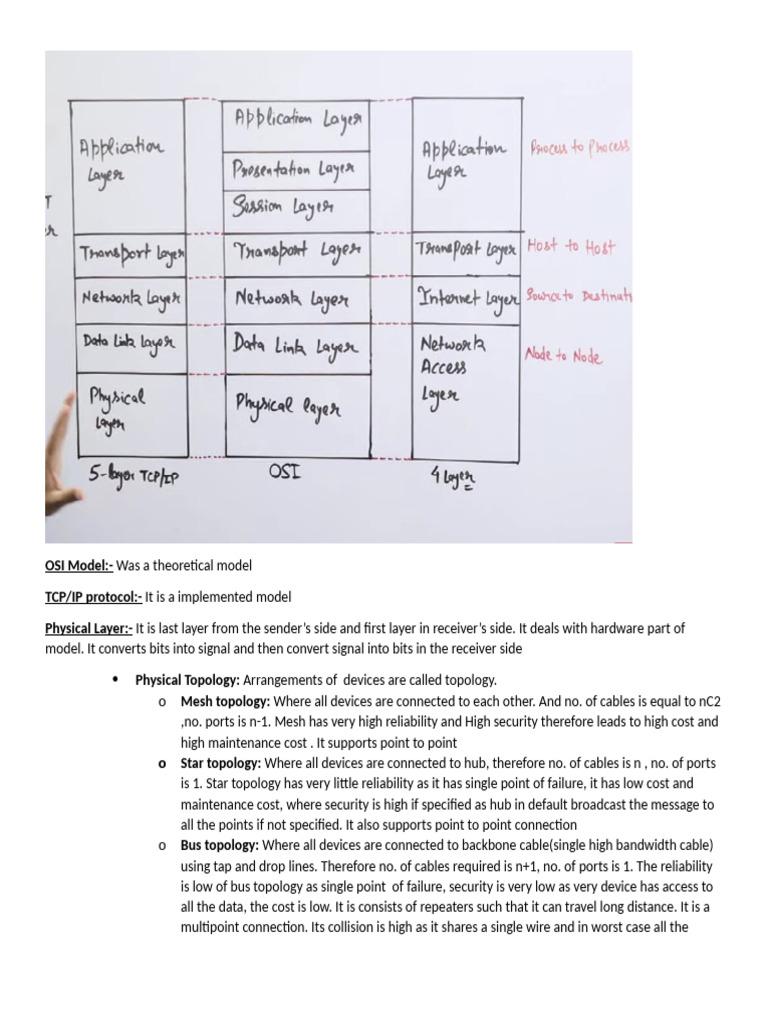 Application Layer
Application Layer
Application Layer
Process to Process
Presentation Layer
Session Layer
Transport Layer
Transport Layer
Transport Layer
Host to Host
Network Layer
Network Layer
Internet Layer
Source to Destinati
Data Link Layer
Data Link Layer
Network Access Layer
Node to Node
Physical Layer
Physical layer
5-layer TCP/IP
OSI
4 Layer
OSI Model:- Was a theoretical model
TCP/IP protocol:- It is a implemented model
Physical Layer:- It is last layer from the sender’s side and first layer in receiver’s side. It deals with hardware part of
model. It converts bits into signal and then convert signal into bits in the receiver side
• Physical Topology: Arrangements of devices are called topology.
o Mesh topology: Where all devices are connected to each other. And no. of cables is equal to nC2
,no. ports is n-1. Mesh has very high reliability and High security therefore leads to high cost and
high maintenance cost . It supports point to point
o Star topology: Where all devices are connected to hub, therefore no. of cables is n , no. of ports
is 1. Star topology has very little reliability as it has single point of failure, it has low cost and
maintenance cost, where security is high if specified as hub in default broadcast the message to
all the points if not specified. It also supports point to point connection
o Bus topology: Where all devices are connected to backbone cable(single high bandwidth cable)
using tap and drop lines. Therefore no. of cables required is n+1, no. of ports is 1. The reliability
is low of bus topology as single point of failure, security is very low as very device has access to
all the data, the cost is low. It is consists of repeaters such that it can travel long distance. It is a
multipoint connection. Its collision is high as it shares a single wire and in worst case all the